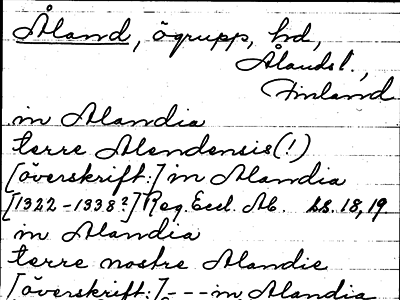 Åland, ögrupp, hd,
Ålandsl.,
Finland
in Alandia
terre Alendensis(!)
[överskrift:] in Alandia
[1322-1338?] Reg. Eccl. Ab. bl. 18, 19
in Alandia
terre nostre Alandie
[överskrift:]---in Alandia